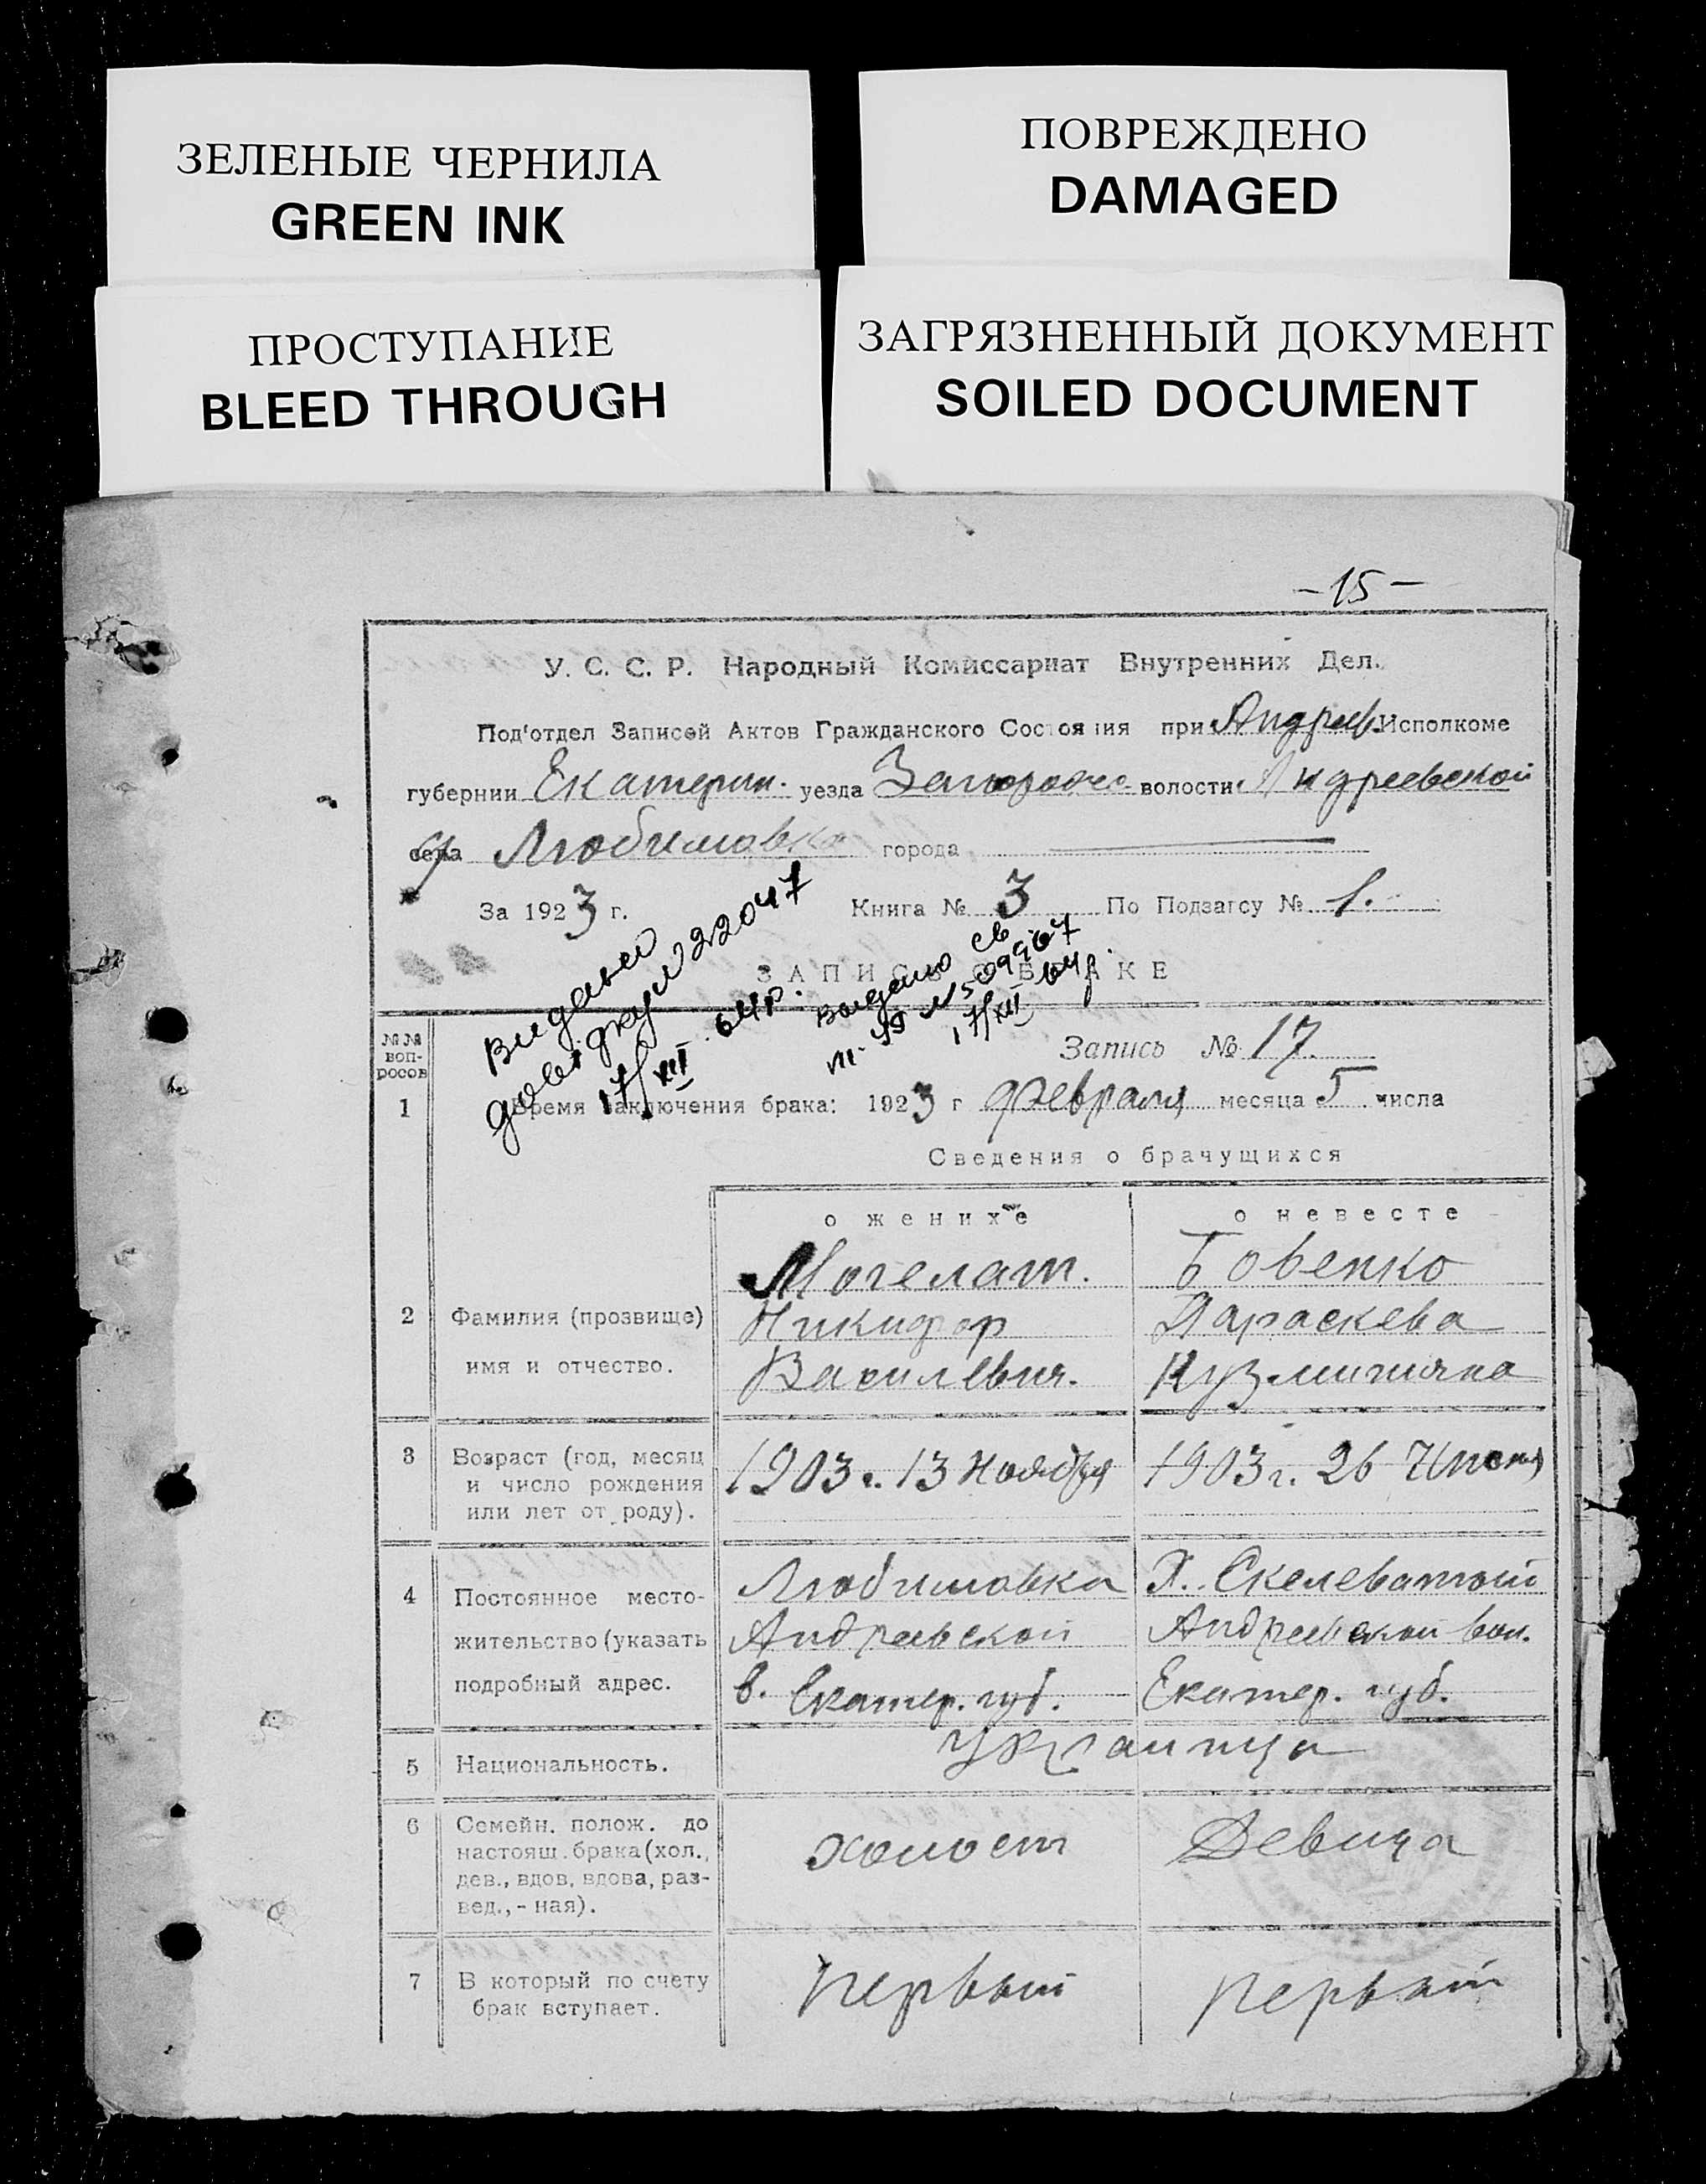 ЗЕЛЕНЫЕ ЧЕРНИЛА
GREEN INK
ПОВРЕЖДЕНО
DAMAGED
ПРОСТУПАНИЕ
BLEED THROUGH
ЗАГРЯЗНЕННЫЙ ДОКУМЕНТ
SOILED DOCUMENT
- 15 -
У. С. С. Р. Народный Комиссариат Внутренних Дел.
Под'отдел Записей Актов Гражданского Состояния при Андреев. Исполкоме
губернии Екатерин. уезда Запорожс волости Андреевской
села Любимовка города
За 1923 г. Книга № 3 По Подзагсу № 1.
ЗАПИСЬ О БРАКЕ
Видано
довідку № 22047
17/XII 64р.
Выдано св
№ 509967
17/XII 64г.
Запись № 17
№№ воп-
росов
1 Время заключения брака: 1923 г февраля месяца 5 числа
Сведения о брачущихся
о женихе о невесте
Могелат. Бовенко
2 Фамилия (прозвище) Никифор Параскева
имя и отчество. Василевич. Кузминична
3 Возраст (год, месяц 1903г. 13 Ноября 1903г. 26
и число рождения
или лет от роду).
4 Постоянное место- Любимовка Х. Скелеватый
жительство (указать Андреевской Андреевской вол.
подробный адрес. в. Екатер. губ. Екатер. губ.
5 Национальность. украинцы
6 Семейн. полож. до холост Девица
настоящ. брака (хол.,
дев., вдов, вдова, раз-
вед., - ная).
7 В который по счету первый первый
брак вступает.